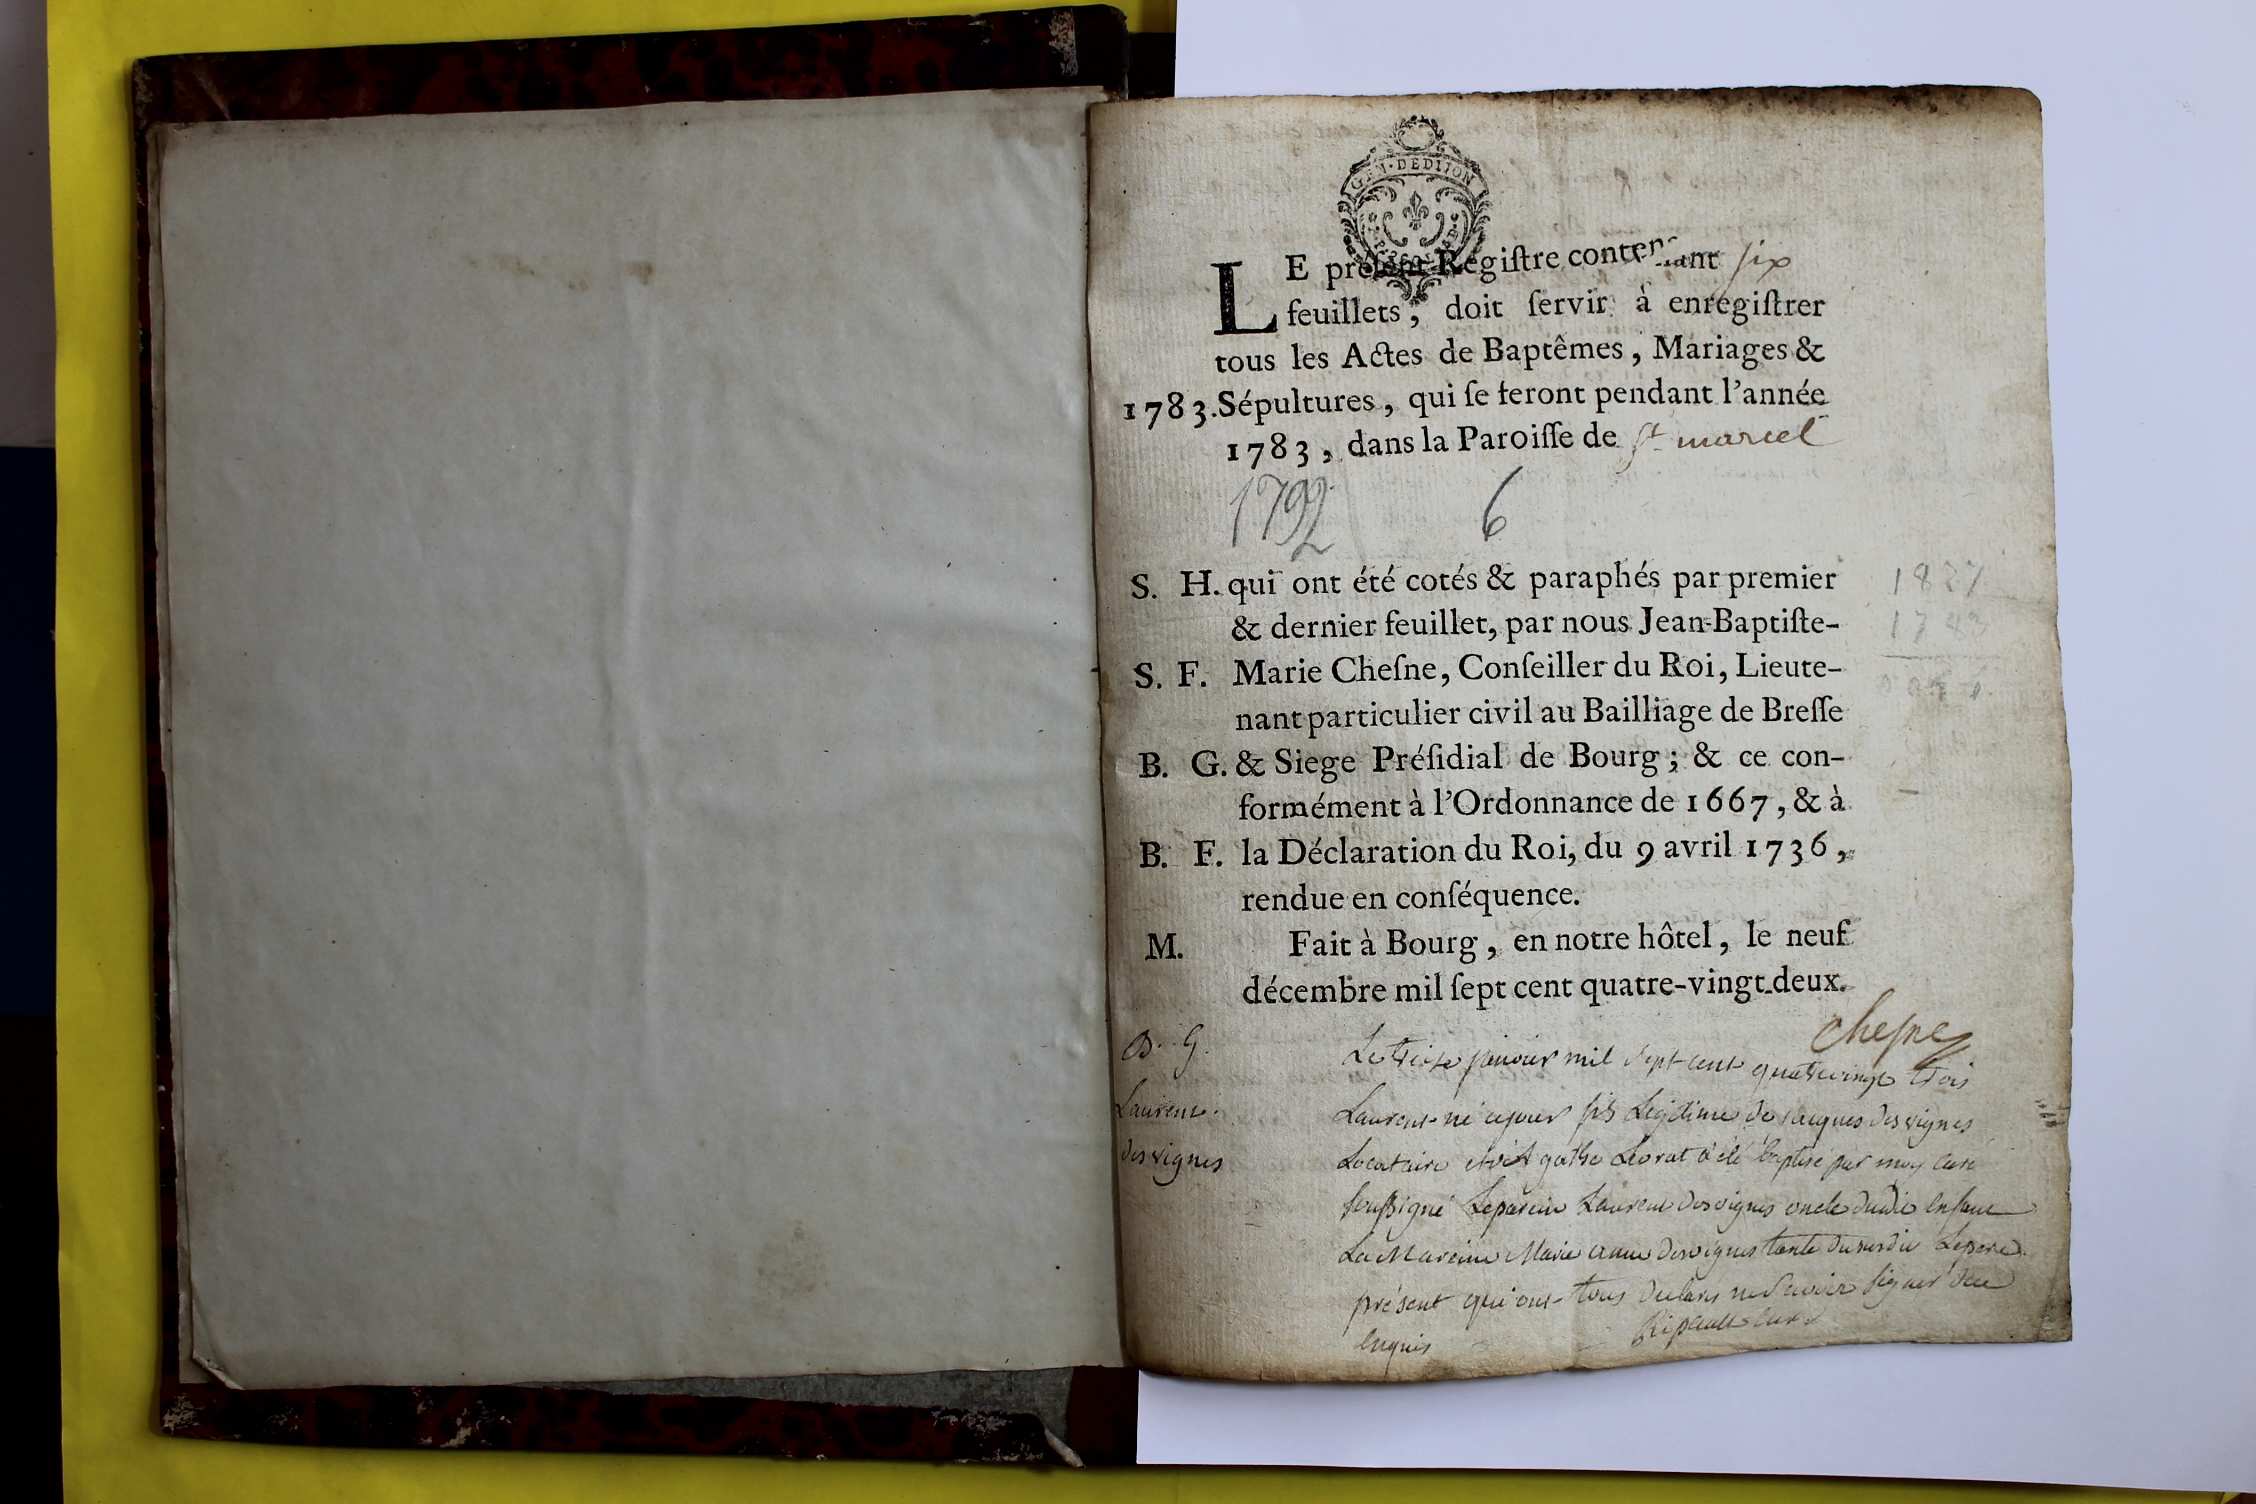 GEN·DEDIJON
LE préſent Regiſtre contenant six
feuillets, doit ſervir à enregiſtrer
tous les Actes de Baptêmes, Mariages &
1783. Sépultures, qui ſe feront pendant l'année
1783, dans la Paroiſſe de St marcel
1792 6
S. H. qui ont été cotés & paraphés par premier
& dernier feuillet, par nous Jean-Baptiſte-
S. F. Marie Cheſne, Conſeiller du Roi, Lieute-
nant particulier civil au Bailliage de Breſſe
B. G. & Siege Préſidial de Bourg; & ce con-
formément à l'Ordonnance de 1667, & à
B. F. la Déclaration du Roi, du 9 avril 1736,
rendue en conſéquence.
M. Fait à Bourg, en notre hôtel, le neuf
décembre mil ſept cent quatre-vingt-deux.
Cheſne
1827
1743
B. G. Le treize janvier mil sept cent quatrevingt trois
Laurent Laurent né cejour fils Legitime de jacques desvignes
desvignes Locataire et d'Agathe a été baptisé par moy curé
soussigné Leparein Laurent desvignes oncle dudit enfant
La Mareine Marie anne desvignes tante dususdit Lepere
présent qui ont tous declaré ne Savoir signer de ce
enquis curé